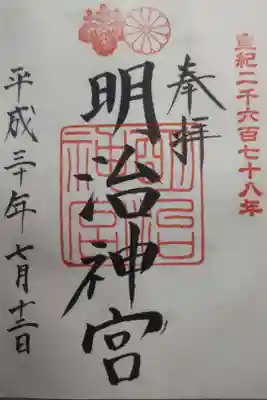 皇紀二千六百七十八年
奉拝
明治神宮
明治神宮
平成三十年七月十二日